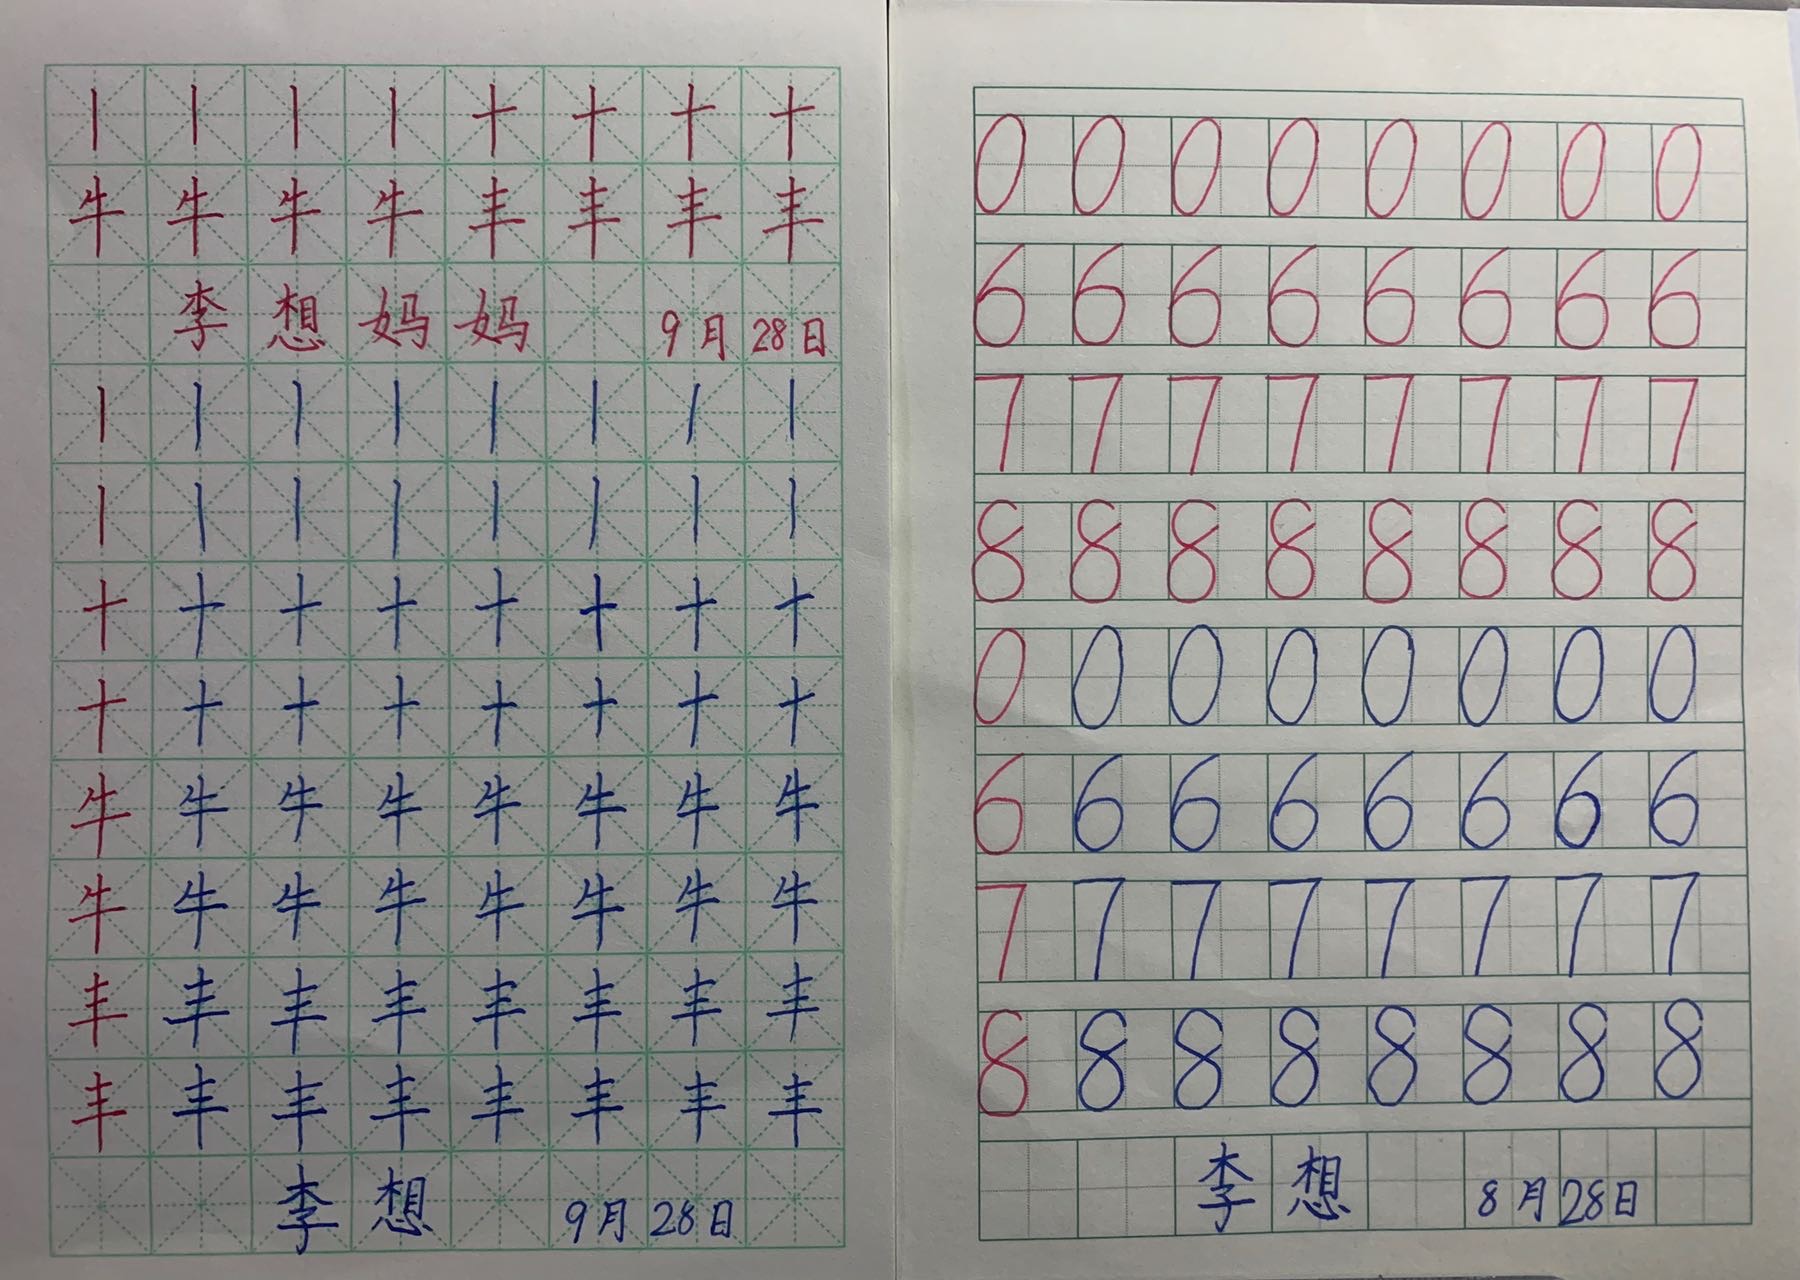 丨 丨 丨 丨 十 十 十 十
牛 牛 牛 牛 丰 丰 丰 丰
李 想 妈 妈 9月 28日
丨 丨 丨 丨 丨 丨 丨 丨
丨 丨 丨 丨 丨 丨 丨 丨
十 十 十 十 十 十 十 十
十 十 十 十 十 十 十 十
牛 牛 牛 牛 牛 牛 牛 牛
牛 牛 牛 牛 牛 牛 牛 牛
丰 丰 丰 丰 丰 丰 丰 丰
丰 丰 丰 丰 丰 丰 丰 丰
李 想 9月 28日
0 0 0 0 0 0 0 0
6 6 6 6 6 6 6 6
7 7 7 7 7 7 7 7
8 8 8 8 8 8 8 8
0 0 0 0 0 0 0 0
6 6 6 6 6 6 6 6
7 7 7 7 7 7 7 7
8 8 8 8 8 8 8 8
李 想 8月 28日